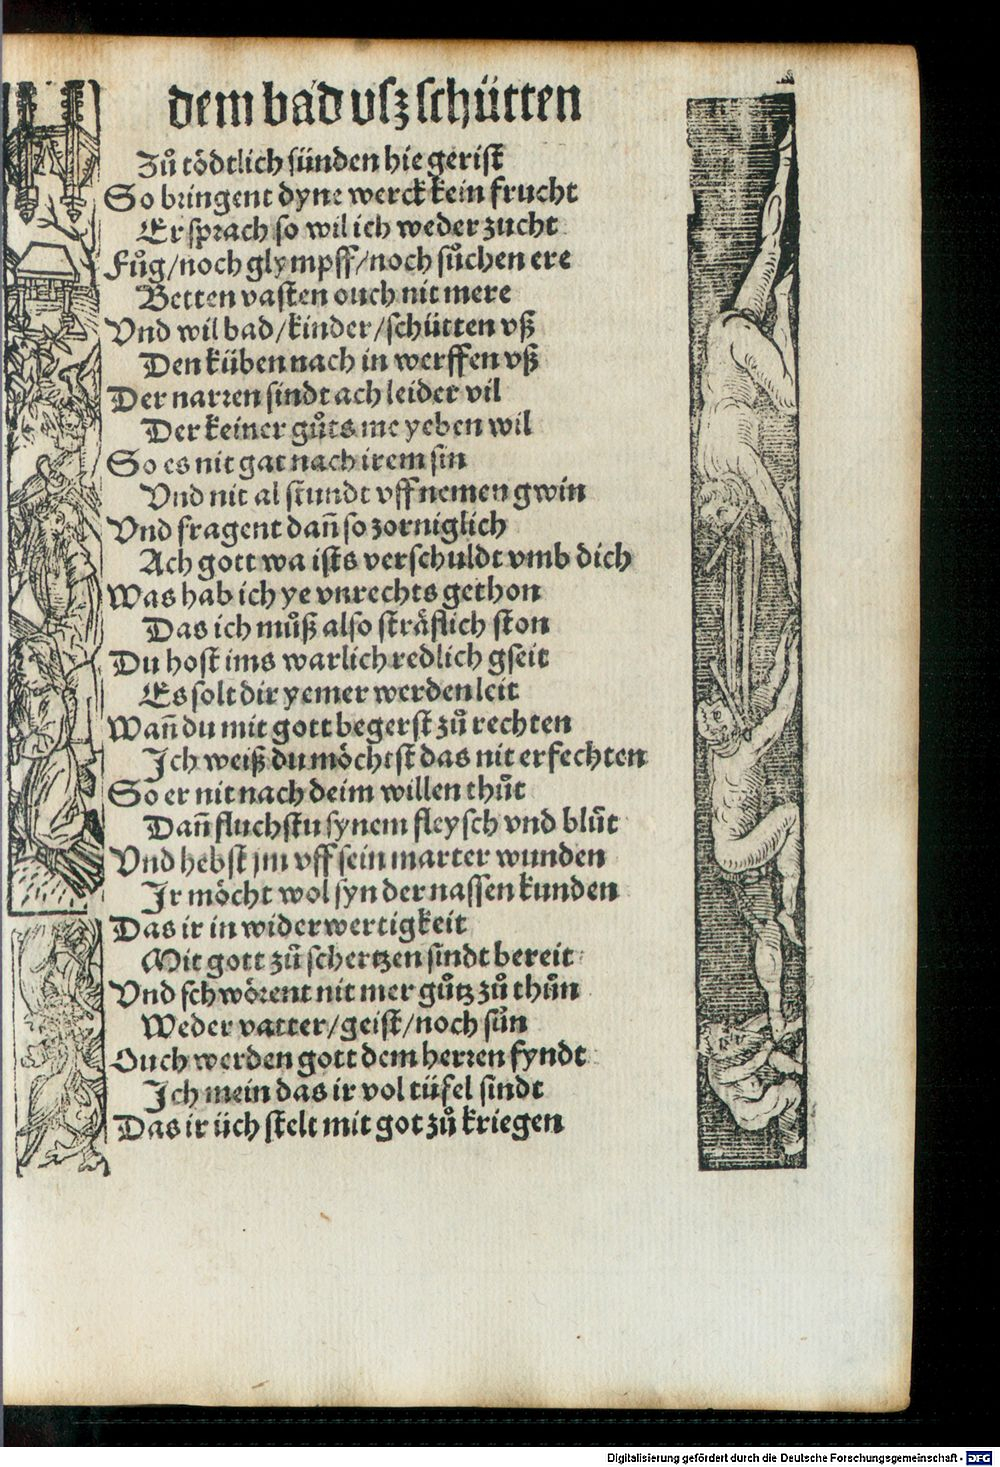 dem bad vsz schütten
Zů tödtlich sünden hie gerist
So bringent dyne werck kein frucht
Er sprach so wil ich weder zucht
Fůg/noch glympff/noch sůchen ere
Betten vasten ouch nit mere
Vnd wil bad/kinder/schütten vß
Den küben nach in werffen vß
Der narren sindt ach leider vil
Der keiner gůts me yeben wil
So es nit gat nach irem sin
Vnd nit al stundt vff nemen gwin
Vnd fragent dañ so zorniglich
Ach gott wa ists verschuldt vmb dich
Was hab ich ye vnrechts gethon
Das ich můß also sträflich ston
Du host ims warlich redlich gseit
Es solt dir yemer werden leit
Wañ du mit gott begerst zů rechten
Ich weiß du möchtst das nit erfechten
So er nit nach deim willen thůt
Dañ fluchstu synem fleysch vnd blůt
Vnd hebst jm vff sein marter wunden
Ir möcht wol syn der nassen kunden
Das ir in widerwertigkeit
Mit gott zů schertzen sindt bereit
Vnd schwörent nit mer gůtz zů thůn
Weder vatter/geist/noch sůn
Ouch werden gott dem herren fyndt
Ich mein das ir vol tüfel sindt
Das ir üch stelt mit got zů kriegen
Digitalisierung gefördert durch die Deutsche Forschungsgemeinschaft - DFG